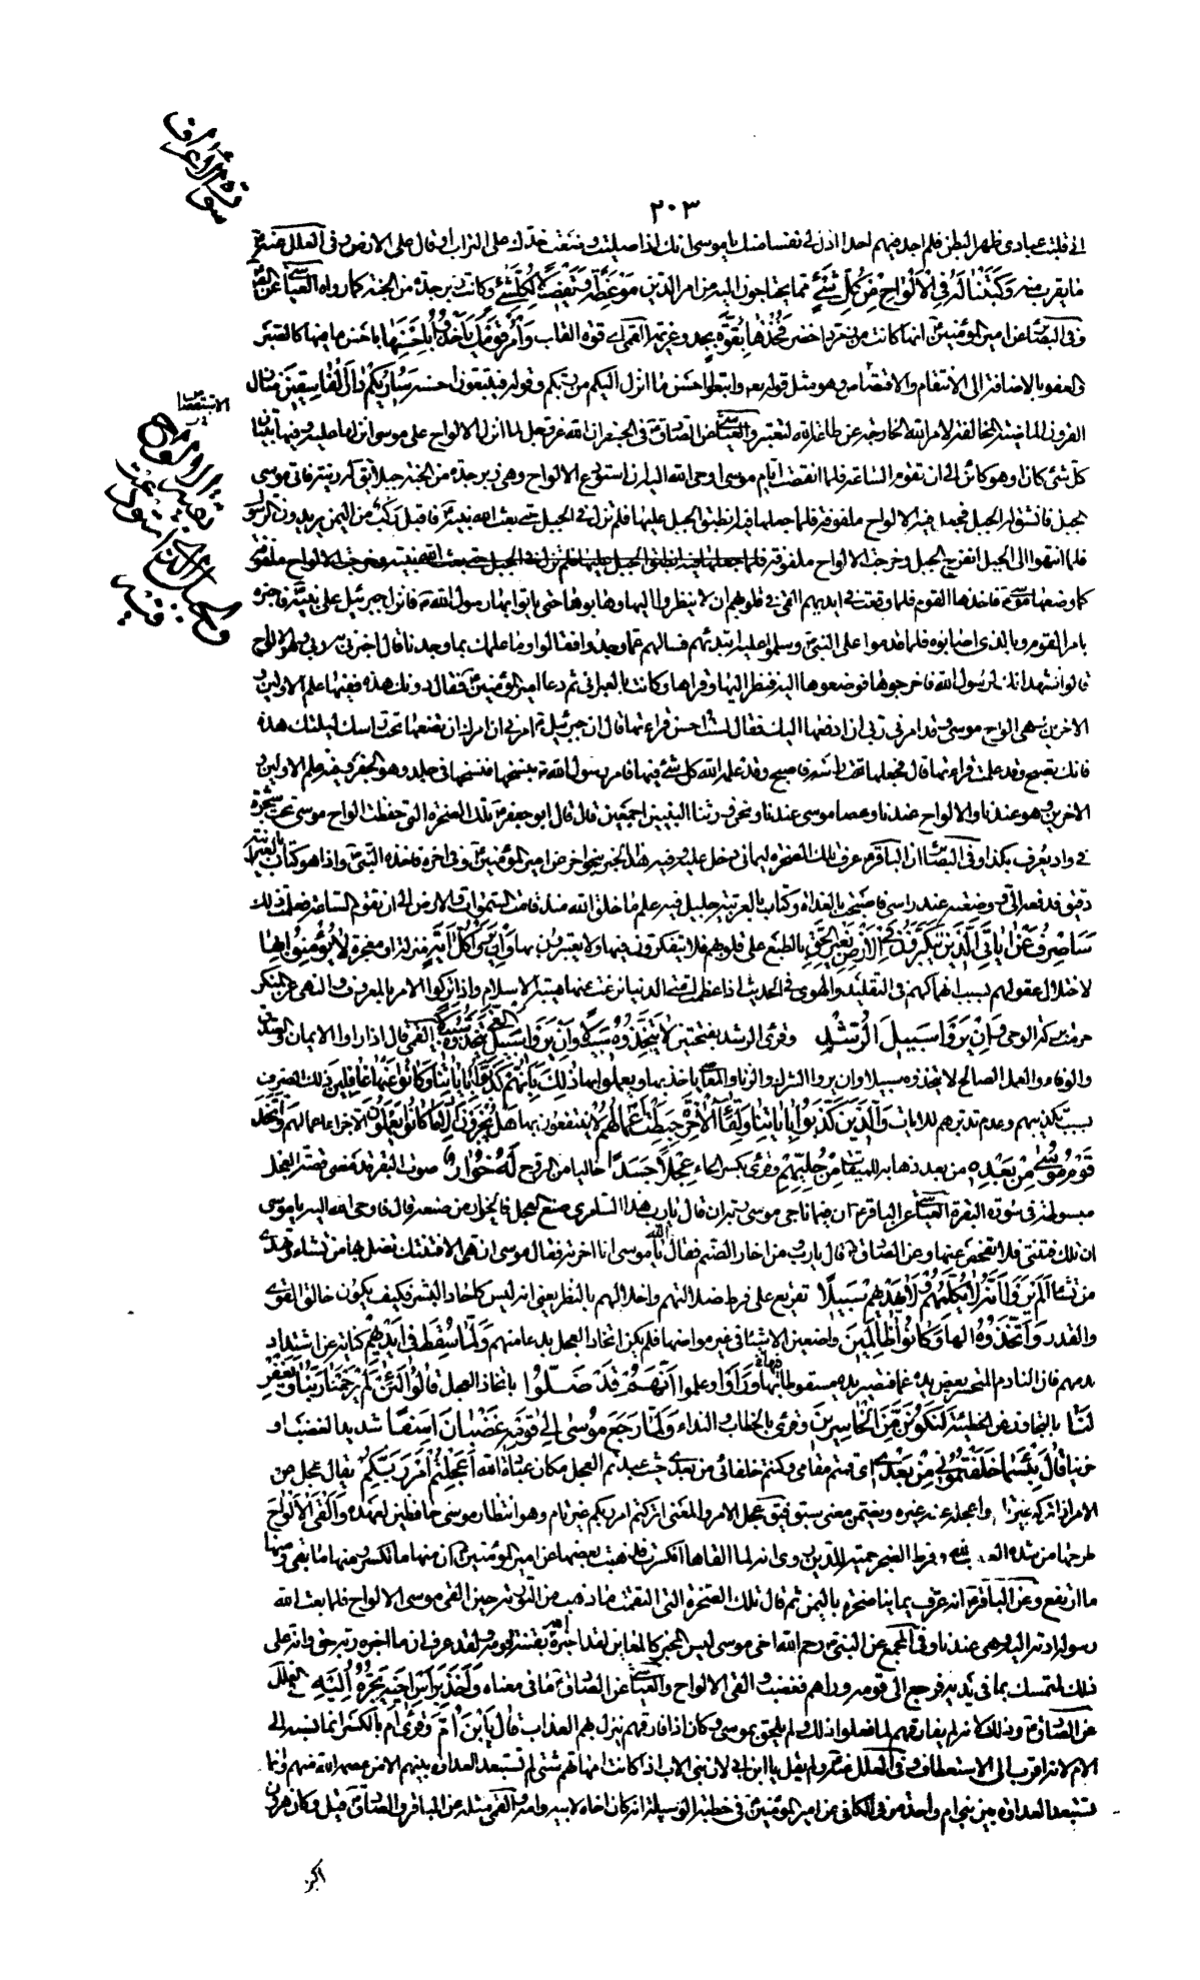 سورة الأعراف
٢٠٣
انى قلبت عبادى ظهرا لبطن فلم اجد فيهم احدا اذل لى نفسا منك يا موسى انك اذا صليت وضعت خديك على التراب او قال على الارض وفى العلل عنه ع
ما يقرب منه وَكَتَبْنَا لَهُ فِي الْأَلْوَاحِ مِن كُلِّ شَيْءٍ مما يحتاجون اليه من امر الدين مَّوْعِظَةً وَتَفْصِيلًا لِّكُلِّ شَيْءٍ وكانت زبرجدة من الجنة كما رواه العياشى عن الصادق ع
وفى البصائر عن امير المؤمنين ع انها كانت من زمرد اخضر فَخُذْهَا بِقُوَّةٍ بجد وعزيمة القمى اى قوة القلب وَأْمُرْ قَوْمَكَ يَأْخُذُوا بِأَحْسَنِهَا باحسن ما فيها كالصبر
والعفو بالاضافة الى الانتقام والاقتصاص وهو مثل قوله تعالى واتبعوا احسن ما انزل اليكم من ربكم وقوله فيتبعون احسنه سَأُرِيكُمْ دَارَ الْفَاسِقِينَ منازل
القرون الماضية المخالفة لامر الله الخارجة عن طاعة الله لتعتبروا العياشى عن الصادق ع فى الجفر ان الله عز وجل لما انزل الالواح على موسى انزلها عليه وفيها تبيان
كل شئ كان او هو كائن الى ان تقوم الساعة فلما انقضت ايام موسى اوحى الله اليه ان استودع الالواح وهى زبرجدة من الجنة جبلا يقال له زينة فاتى موسى
الجبل فانشق له الجبل فجعل فيه الالواح ملفوفة فلما جعلها فيه انطبق الجبل عليها فلم تزل فى الجبل حتى بعث الله نبيه ع فاقبل ركب من اليمن يريدون الرسول
فلما انتهوا الى الجبل انفرج الجبل وخرجت الالواح ملفوفة
كما وضعها موسى فاخذها القوم فلما وقعت فى ايديهم القى فى قلوبهم ان لا ينظروا اليها وهابوها حتى ياتوا بها رسول الله ص فانزل جبرئيل على نبيه فاخبره
بامر القوم وبالذى اصابوه فلما قدموا على النبى ص وسلموا عليه ابتدئهم فسالهم عما وجدوا فقالوا وما علمك بما وجدنا قال اخبرنى به ربى وهو الالواح
قالوا نشهد انك لرسول الله فاخرجوها فوضعوها اليه فنظر اليها وقراها وكانت بالعبرانى ثم دعا امير المؤمنين ع فقال دونك هذه ففيها علم الاولين و
الاخرين وهى الواح موسى وقد امرنى ربى ان ادفعها اليك فقال لست احسن قراءتها قال ان جبرئيل ع امرنى ان امرك ان تضعها تحت راسك ليلتك هذه
فانك تصبح وقد علمت قراءتها قال فجعلها تحت راسه فاصبح وقد علمه الله كل شئ فيها فامره رسول الله ص بنسخها فنسخها فى جلد وهو الجفر وفيه علم الاولين و
الاخرين وهو عندنا والالواح عندنا وعصا موسى عندنا ونحن ورثنا النبيين اجمعين قال قال ابو جعفر ع تلك الصخرة التى حفظت الواح موسى تحت شجرة
فى واد يعرف بكذا وفى البصائر ان الباقر ع عرف تلك الصخرة ليمانى دخل عليه وفيه هذا الخبر بنحو اخر عن امير المؤمنين ع وفى اخره فاخذه النبى ص واذا هو كتاب بالعبرانية
دقيق فدفعه الى ووضعته عند راسى فاصبحت بالغداة وكتاب بالعربية جليل فيه علم ما خلق الله منذ قامت السموات والارض الى ان تقوم الساعة فعلمت ذلك
سَأَصْرِفُ عَنْ آيَاتِيَ الَّذِينَ يَتَكَبَّرُونَ فِي الْأَرْضِ بِغَيْرِ الْحَقِّ بالطبع على قلوبهم فلا يتفكرون فيها ولا يعتبرون بها وَإِن يَرَوْا كُلَّ آيَةٍ منزلة او معجزة لَّا يُؤْمِنُوا بِهَا
لاختلال عقولهم بسبب انهماكهم فى التقليد والهوى وفى الحديث اذا عظمت امتى الدنيا نزعت عنها هيبة الاسلام واذا تركوا الامر بالمعروف والنهى عن المنكر
حرمت بركة الوحى وَإِن يَرَوْا سَبِيلَ الرُّشْدِ وقرئ الرشد بفتحتين لَا يَتَّخِذُوهُ سَبِيلًا وَإِن يَرَوْا سَبِيلَ الْغَيِّ يَتَّخِذُوهُ سَبِيلًا القمى قال اذا راوا الايمان والصدق
والوفاء والعمل الصالح لا يتخذوه سبيلا وان يروا الشرك والزنا والمعاصى ياخذ بها ويعملوا بها ذَٰلِكَ بِأَنَّهُمْ كَذَّبُوا بِآيَاتِنَا وَكَانُوا عَنْهَا غَافِلِينَ ذلك الصرف
بسبب تكذيبهم وعدم تدبرهم للايات وَالَّذِينَ كَذَّبُوا بِآيَاتِنَا وَلِقَاءِ الْآخِرَةِ حَبِطَتْ أَعْمَالُهُمْ لا ينتفعون بها هَلْ يُجْزَوْنَ إِلَّا مَا كَانُوا يَعْمَلُونَ الا جزاء اعمالهم وَاتَّخَذَ
قَوْمُ مُوسَىٰ مِن بَعْدِهِ من بعد ذهابه للميقات مِنْ حُلِيِّهِمْ وقرئ بكسر الحاء عِجْلًا جَسَدًا خاليا من الروح لَّهُ خُوَارٌ صوت البقر قد مضى قصة العجل
مبسوطة فى سورة البقرة العياشى عن الباقر ع ان فيما ناجى موسى ربه ان قال يا رب هذا السامرى صنع العجل فالخوار من صنعه قال فاوحى الله اليه يا موسى
ان تلك فتنتى فلا تفحص عنها وعن الصادق ع قال يا رب ومن اخار الصنم فقال الله يا موسى انا اخرته فقال موسى ان هى الا فتنتك تضل بها من تشاء وتهدى
من تشاء أَلَمْ يَرَوْا أَنَّهُ لَا يُكَلِّمُهُمْ وَلَا يَهْدِيهِمْ سَبِيلًا تقريع على فرط ضلالتهم واخلالهم بالنظر يعنى انه ليس كاحاد البشر فكيف يكون خالق القوى
والقدر اتَّخَذُوهُ الها وَكَانُوا ظَالِمِينَ واضعين الاشياء فى غير مواضعها فلم يكن اتخاذ العجل بدعا منهم وَلَمَّا سُقِطَ فِي أَيْدِيهِمْ كناية عن اشتداد
ندمهم فان النادم المتحسر يعض يده غما فتصير يده مسقوطا فيها وَرَأَوْا وعلموا أَنَّهُمْ قَدْ ضَلُّوا باتخاذ العجل قَالُوا لَئِن لَّمْ يَرْحَمْنَا رَبُّنَا وَيَغْفِرْ
لَنَا بالتجاوز عن الخطيئة لَنَكُونَنَّ مِنَ الْخَاسِرِينَ وقرئ بالخطاب والنداء وَلَمَّا رَجَعَ مُوسَىٰ إِلَىٰ قَوْمِهِ غَضْبَانَ أَسِفًا شديد الغضب او
حزينا قَالَ بِئْسَمَا خَلَفْتُمُونِي مِن بَعْدِي اى قمتم مقامى وكنتم خلفائى من بعدى حيث عبدتم العجل مكان عبادة الله أَعَجِلْتُمْ أَمْرَ رَبِّكُمْ يقال عجل عن
الامر اذا تركه غير تام واعجله عنه غيره ويضمن معنى سبق فيق عجل الامر والمعنى اتركتم امر ربكم غير تام وهو انتظار موسى حافظين لعهده وَأَلْقَى الْأَلْوَاحَ
طرحها من شدة الغضب لله وفرط الضجر حمية للدين روى انه لما القاها انكسرت فذهب بعضها عن امير المؤمنين ع ان منها ما تكسر ومنها ما بقى ومنها
ما ارتفع وعن الباقر ع انه عرف يمانيا صخرة باليمن ثم قال تلك الصخرة التى التقمت ما ذهب من التورية حين القى موسى الالواح فلما بعث الله
رسوله ادته اليه وهى عندنا وفى المجمع عن النبى ص رحم الله اخى موسى ليس المخبر كالمعاين لقد اخبره الله بفتنة قومه ولقد عرف ان ما اخبره ربه حق وانه على
ذلك لمتمسك بما فى يديه فرجع الى قومه وراهم فغضب والقى الالواح والعياشى عن الصادق ع ما فى معناه وَأَخَذَ بِرَأْسِ أَخِيهِ يَجُرُّهُ إِلَيْهِ فى العلل
عن الصادق ع وذلك لانه لم يفارقهم لما فعلوا ذلك ولم يلحق بموسى وكان اذا فارقهم ينزل بهم العذاب قَالَ يَا ابْنَ أُمَّ وقرئ ام بالكسر انما نسبه الى
الام لانه اقرب الى الاستعطاف وفى العلل عنه ع ولم يقل يا ابن ابى لان بنى الاب اذا كانت امهاتهم شتى لم تستبعد العداوة بينهم الا من عصمه الله منهم وانما
تستبعد العداوة بين بنى ام واحدة وفى الكافى عن امير المؤمنين ع فى خطبة الوسيلة انه كان اخاه لابيه وامه والقمى مثله عن الباقر والصادق ع قيل وكان هرون
اكبر